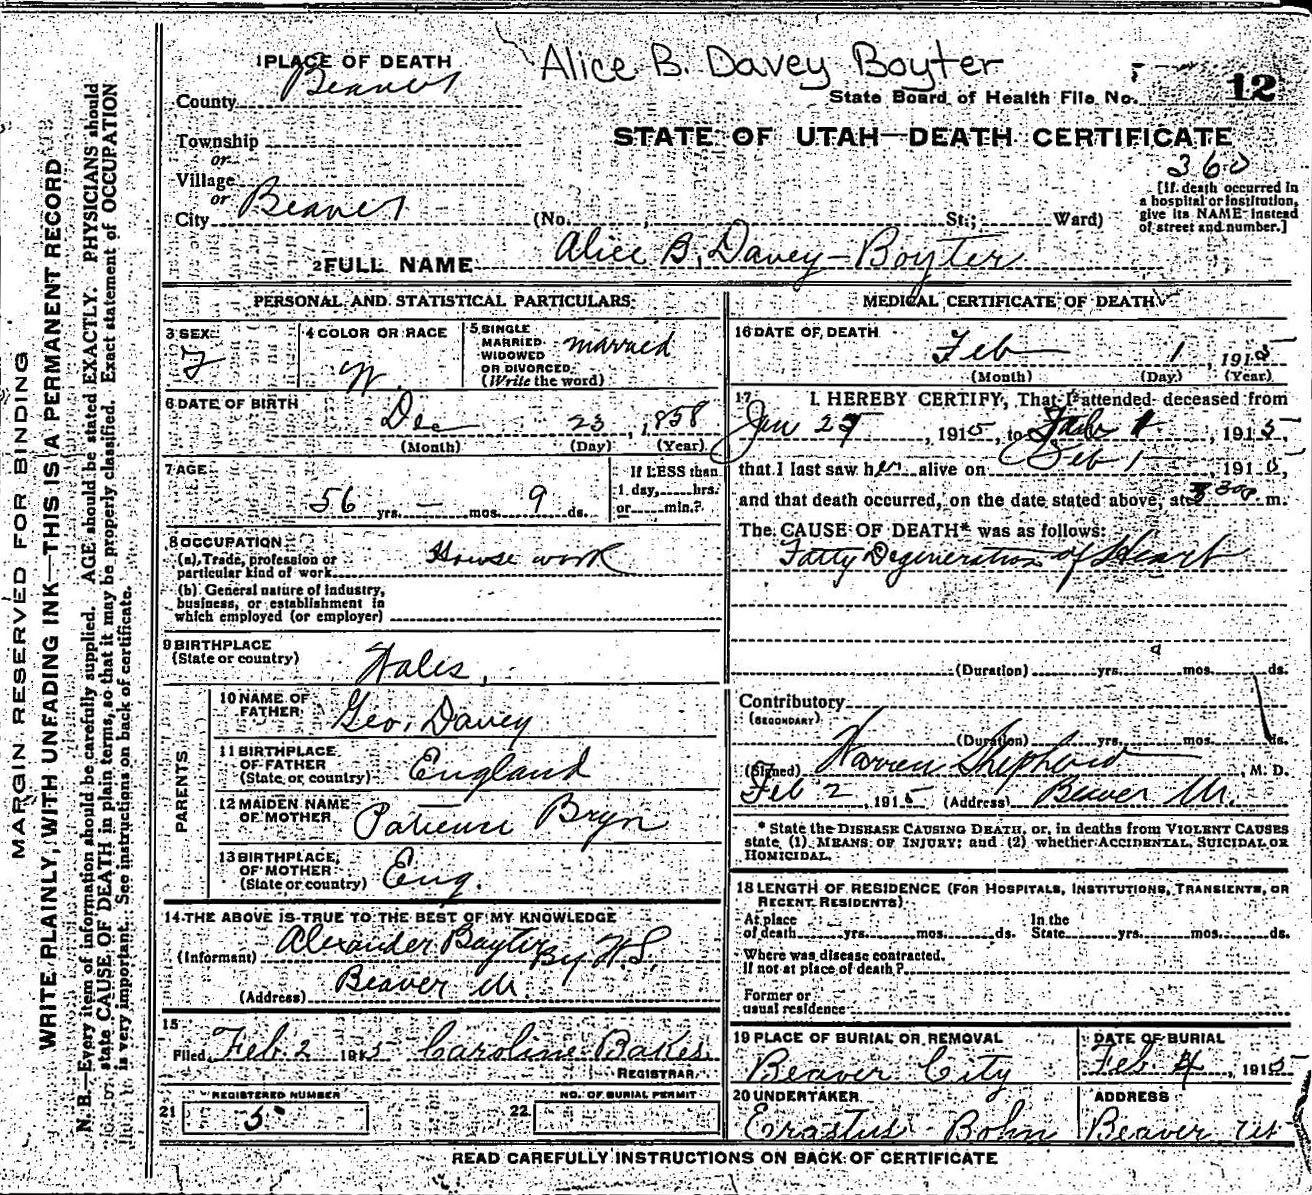 Alice B. Davey Boyter
1 PLACE OF DEATH
County Beaver
State Board of Health File No. 12
Township
or
Village
or
City Beaver
(No. , St.; Ward)
STATE OF UTAH—DEATH CERTIFICATE
360
[If death occurred in
a hospital or institution,
give its NAME instead
of street and number.]
2 FULL NAME Alice B. Davey-Boyter
PERSONAL AND STATISTICAL PARTICULARS
3 SEX F
4 COLOR OR RACE W.
5 SINGLE
MARRIED
WIDOWED
OR DIVORCED
(Write the word) married
6 DATE OF BIRTH
Dec 23, 1858
(Month) (Day) (Year)
7 AGE
56 yrs. — mos. 9 ds.
If LESS than
1 day, hrs.
or min.?
8 OCCUPATION
(a) Trade, profession or
particular kind of work House work
(b) General nature of industry,
business, or establishment in
which employed (or employer)
9 BIRTHPLACE
(State or country) Wales,
PARENTS
10 NAME OF
FATHER Geo. Davey
11 BIRTHPLACE
OF FATHER
(State or country) England
12 MAIDEN NAME
OF MOTHER Patience Bryn
13 BIRTHPLACE
OF MOTHER
(State or country) Eng.
14 THE ABOVE IS TRUE TO THE BEST OF MY KNOWLEDGE
(Informant) Alexander Boyter By W.S.
(Address) Beaver Ut.
15
Filed Feb. 2 1915 Caroline Bakes
REGISTRAR
REGISTERED NUMBER
21 5
NO. OF BURIAL PERMIT
22
MEDICAL CERTIFICATE OF DEATH
16 DATE OF DEATH
Feb 1, 1915
(Month) (Day) (Year)
17 I HEREBY CERTIFY, That I attended deceased from
Jan 27, 1915, to Feb 1, 1915,
that I last saw her alive on Feb 1, 1915,
and that death occurred, on the date stated above, at 30 m.
The CAUSE OF DEATH* was as follows:
Fatty Degeneration of Heart
(Duration) yrs. mos. ds.
Contributory
(SECONDARY)
(Duration) yrs. mos. ds.
(Signed) Warren Shepherd, M. D.
Feb 2, 1915 (Address) Beaver Ut.
* State the DISEASE CAUSING DEATH, or, in deaths from VIOLENT CAUSES
state (1) MEANS OF INJURY; and (2) whether ACCIDENTAL, SUICIDAL OR
HOMICIDAL.
18 LENGTH OF RESIDENCE (FOR HOSPITALS, INSTITUTIONS, TRANSIENTS, OR
RECENT RESIDENTS)
At place
of death yrs. mos. ds.
In the
State yrs. mos. ds.
Where was disease contracted,
if not at place of death?
Former or
usual residence
19 PLACE OF BURIAL OR REMOVAL
Beaver City
DATE OF BURIAL
Feb. 4, 1915
20 UNDERTAKER
Erastus Bohn
ADDRESS
Beaver Ut
READ CAREFULLY INSTRUCTIONS ON BACK OF CERTIFICATE
MARGIN RESERVED FOR BINDING
WRITE PLAINLY, WITH UNFADING INK—THIS IS A PERMANENT RECORD
N. B.—Every item of information should be carefully supplied. AGE should be stated EXACTLY. PHYSICIANS should
state CAUSE OF DEATH in plain terms, so that it may be properly classified. Exact statement of OCCUPATION
is very important. See instructions on back of certificate.